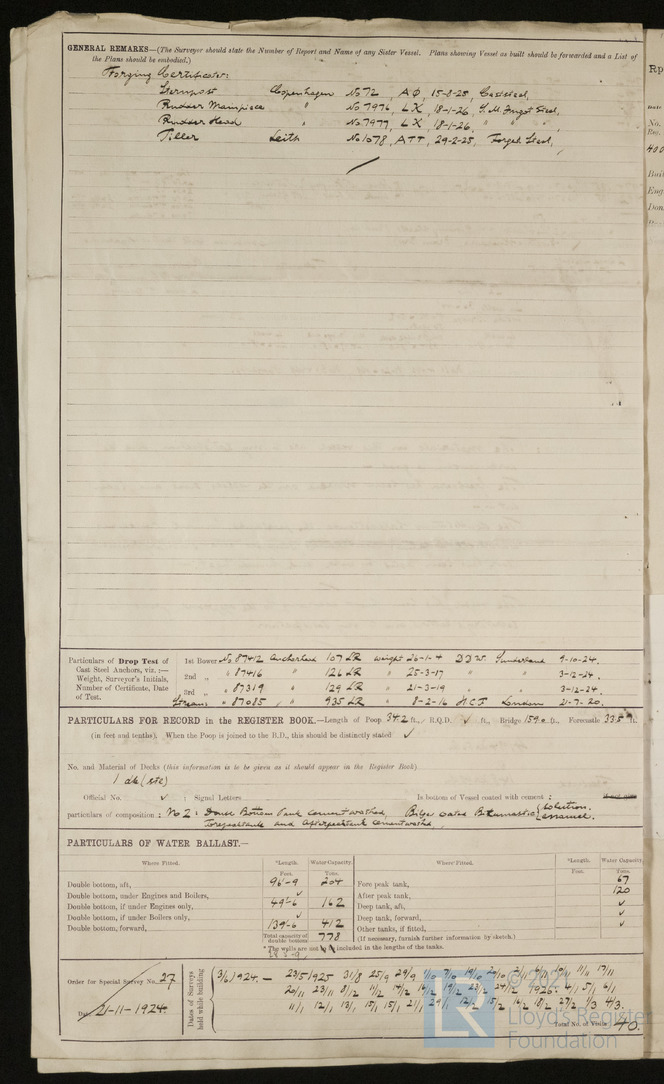 GENERAL REMARKS—(The Surveyor should state the Number of Report and Name of any Sister Vessel. Plans showing Vessel as built should be forwarded and a List of
the Plans should be embodied.)
Forging Certificates:
Sternpost Copenhagen No 72, AØ, 15-8-25, Caststeel,
Rudder Mainpiece " No 7976, LX, 18-1-26, S.M. Ingot Steel,
Rudder Head " No 7977, LX, 18-1-26, " " "
Tiller Leith No 1078, ATT, 29-2-25, Forged Steel,
Particulars of Drop Test of
Cast Steel Anchors, viz.:—
Weight, Surveyor's Initials,
Number of Certificate, Date
of Test.
1st Bower No 87412 Anchorhead 107 LR weight 26-1-4 DDW. Sunderland 9-10-24.
2nd " " 87416 " 126 LR " 25-3-17 " " 3-12-24.
3rd " " 87319 " 129 LR " 21-3-19 " " 3-12-24.
Stream " 87085 " 935 LR " 8-2-16 H.C.F London 21-7-20.
PARTICULARS FOR RECORD in the REGISTER BOOK.—Length of Poop 34.2 ft., R.Q.D. ✓ ft., Bridge 159.0 ft., Forecastle 33.5 ft.
(in feet and tenths). When the Poop is joined to the B.D., this should be distinctly stated ✓
No. and Material of Decks (this information is to be given as it should appear in the Register Book).
1 dk (stl)
Official No. ✓ ; Signal Letters Is bottom of Vessel coated with cement ;
particulars of composition : No 2: Double Bottom Tank cementwashed, Bilge coated Bitumastic { solution.
Forepeaktank and Afterpeaktank cementwashed, enamel.
PARTICULARS OF WATER BALLAST.—
Where Fitted. *Length. Water Capacity. Where Fitted. *Length. Water Capacity.
Feet. Tons. Feet. Tons.
Double bottom, aft, 96-9 204 Fore peak tank, 67
Double bottom, under Engines and Boilers, ✓ After peak tank, 120
Double bottom, if under Engines only, 49-6 162 Deep tank, aft, ✓
Double bottom, if under Boilers only, ✓ Deep tank, forward, ✓
Double bottom, forward, 139-6 412 Other tanks, if fitted, ✓
Total capacity of double bottom 778 (If necessary, furnish further information by sketch.)
* The wells are not included in the lengths of the tanks.
Order for Special Survey No. 27
Date 21-11-1924.
Dates of Surveys held while building
3/6 1924. — 23/5 1925 31/8 25/9 29/9 1/10 7/10 19/10 20/10 2/11 4/11 10/11 11/11 17/11
20/11 23/11 8/12 11/12 14/12 16/12 19/12 23/12 24/12 1926. 4/1 5/1 6/1
11/1 12/1 13/1 15/1 15/1 21/1 29/1 12/2 15/2 16/2 18/2 27/2 1/3 4/3.
Total No. of Visits 40.
© Lloyd's Register
Foundation
LR